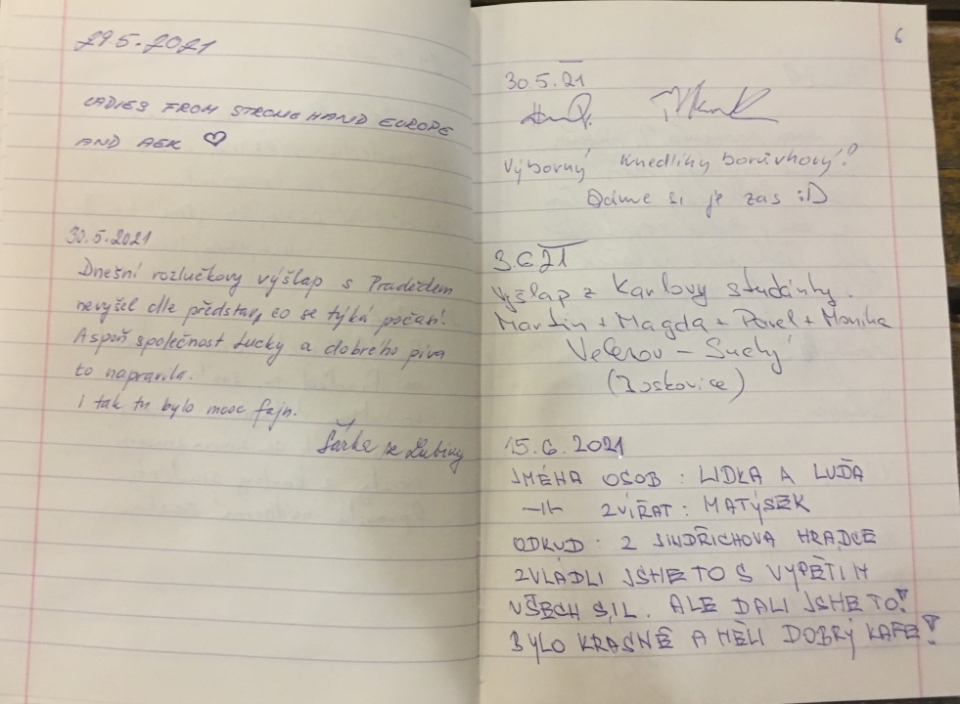 29.5.2021
LADIES FROM STRONG HAND EUROPE
AND AEK ♡
30.5.2021
Dnešní rozlučkovy výšlap s Pradědem
nevyšel dle představ, co se týká počasí.
Aspoň společnost Lucky a dobrého piva
to napravila.
I tak tu bylo mooc fajn.
Šárka ze Lubiny
6
30.5.21
Výborný knedlíky borůvkový!
Dáme si je zas :D
3.6 21
Výšlap z Karlovy studánky.
Martin + Magda + Pavel + Monika
Suchý
15.6.2021
JMÉNA OSOB : LIDKA A LUĎA
-11- ZVÍŘAT : MATÝSEK
ODKUD : Z JINDŘICHOVA HRADCE
ZVLÁDLI JSME TO S VYPĚTIM
VŠECH SIL. ALE DALI JSME TO!
BYLO KRASNĚ A MĚLI DOBRÝ KAFE!